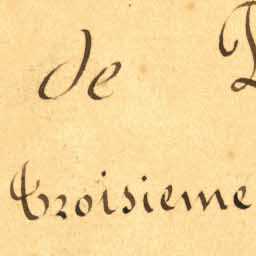 de
Troisieme